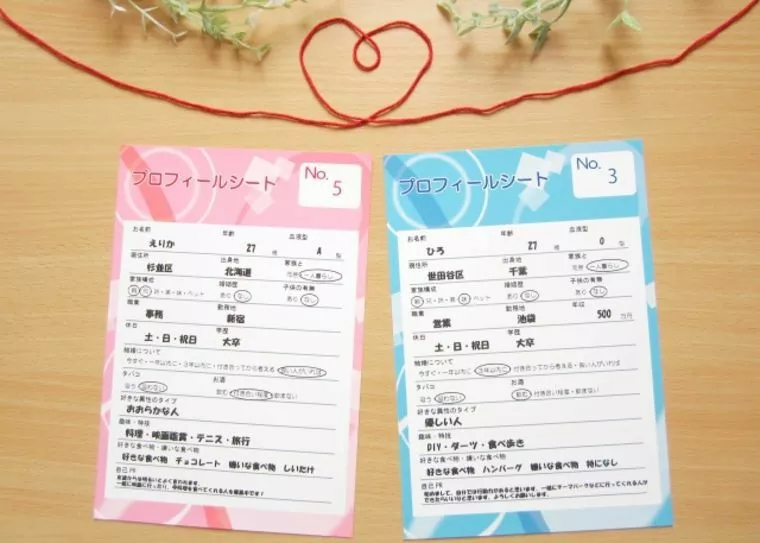 プロフィールシート
No.
5
お名前 年齢 血液型
えりか 27 歳 A 型
現住所 出身地 家族と
杉並区 北海道 同居 一人暮らし
家族構成 婚姻歴 子供の有無
あり なし あり なし
職業 勤務地
事務 新宿
休日 学歴
土・日・祝日 大卒
結婚について
今すぐ・一年以内に・3年以内に・付き合ってから考える・良い人がいれば
タバコ お酒
吸う 吸わない 飲む 付き合い程度・飲まない
好きな異性のタイプ
おおらかな人
趣味・特技
料理・映画鑑賞・テニス・旅行
好きな食べ物・嫌いな食べ物
好きな食べ物 チョコレート 嫌いな食べ物 しいたけ
自己PR
プロフィールシート
No.
3
お名前 年齢 血液型
ひろ 27 歳 O 型
現住所 出身地 家族と
世田谷区 千葉 同居 一人暮らし
家族構成 婚姻歴 子供の有無
あり なし あり なし
職業 勤務地 年収
営業 池袋 500 万円
休日 学歴
土・日・祝日 大卒
結婚について
今すぐ・一年以内に・3年以内に・付き合ってから考える・良い人がいれば
タバコ お酒
吸う 吸わない 飲む 付き合い程度・飲まない
好きな異性のタイプ
優しい人
趣味・特技
DIY・ダーツ・食べ歩き
好きな食べ物・嫌いな食べ物
好きな食べ物 ハンバーグ 嫌いな食べ物 特になし
自己PR